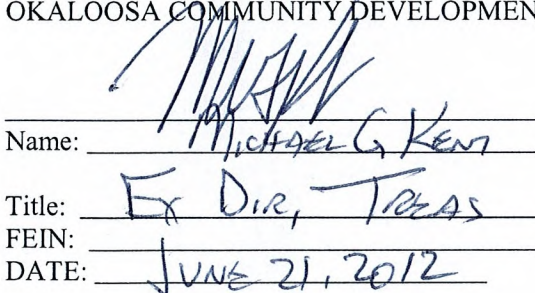 OKALOOSA COMMUNITY DEVELOPMEN
Name: MICHAEL G KENT
Title: EX DIR, TREAS
FEIN:
DATE: JUNE 21, 2012